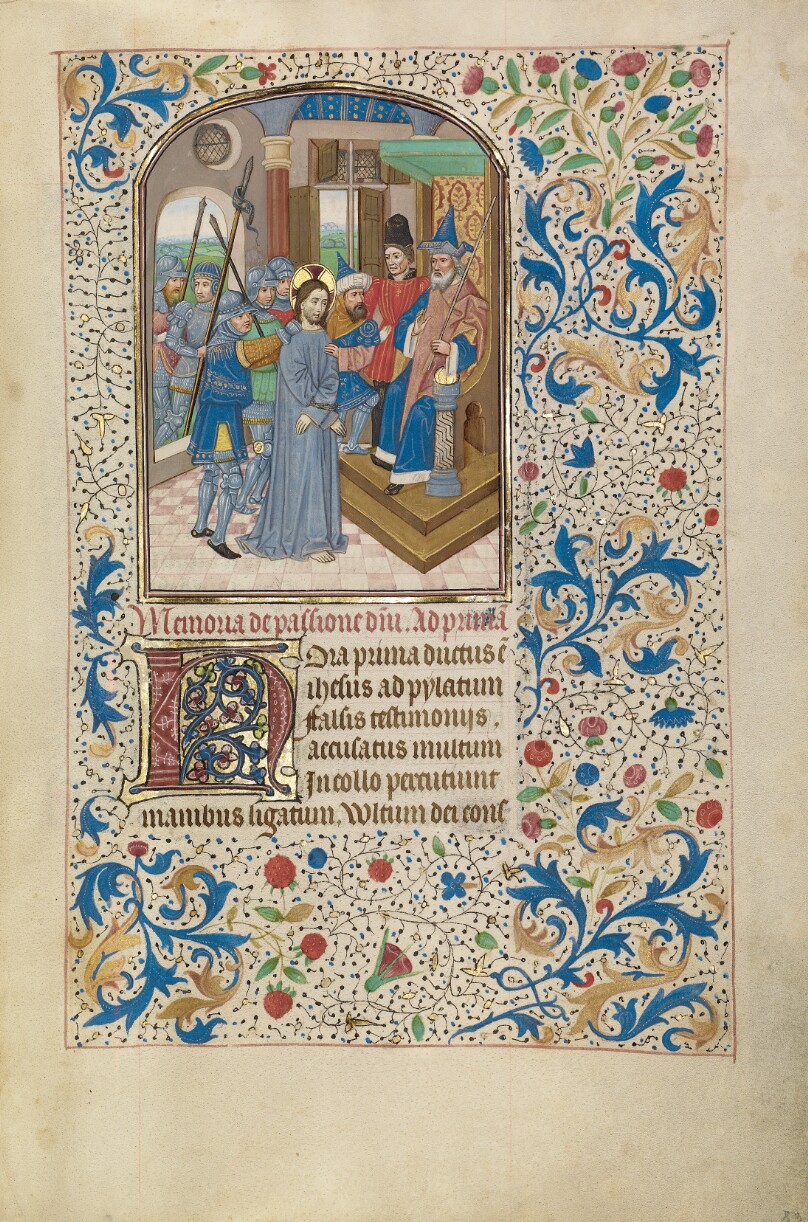 Memoria de passione dn̄i. Ad primā
Hora prima ductus ē
ihesus ad pylatum
falsis testimonijs.
accusatus multum
In collo percutiunt
manibus ligatum. Wltum dei cons